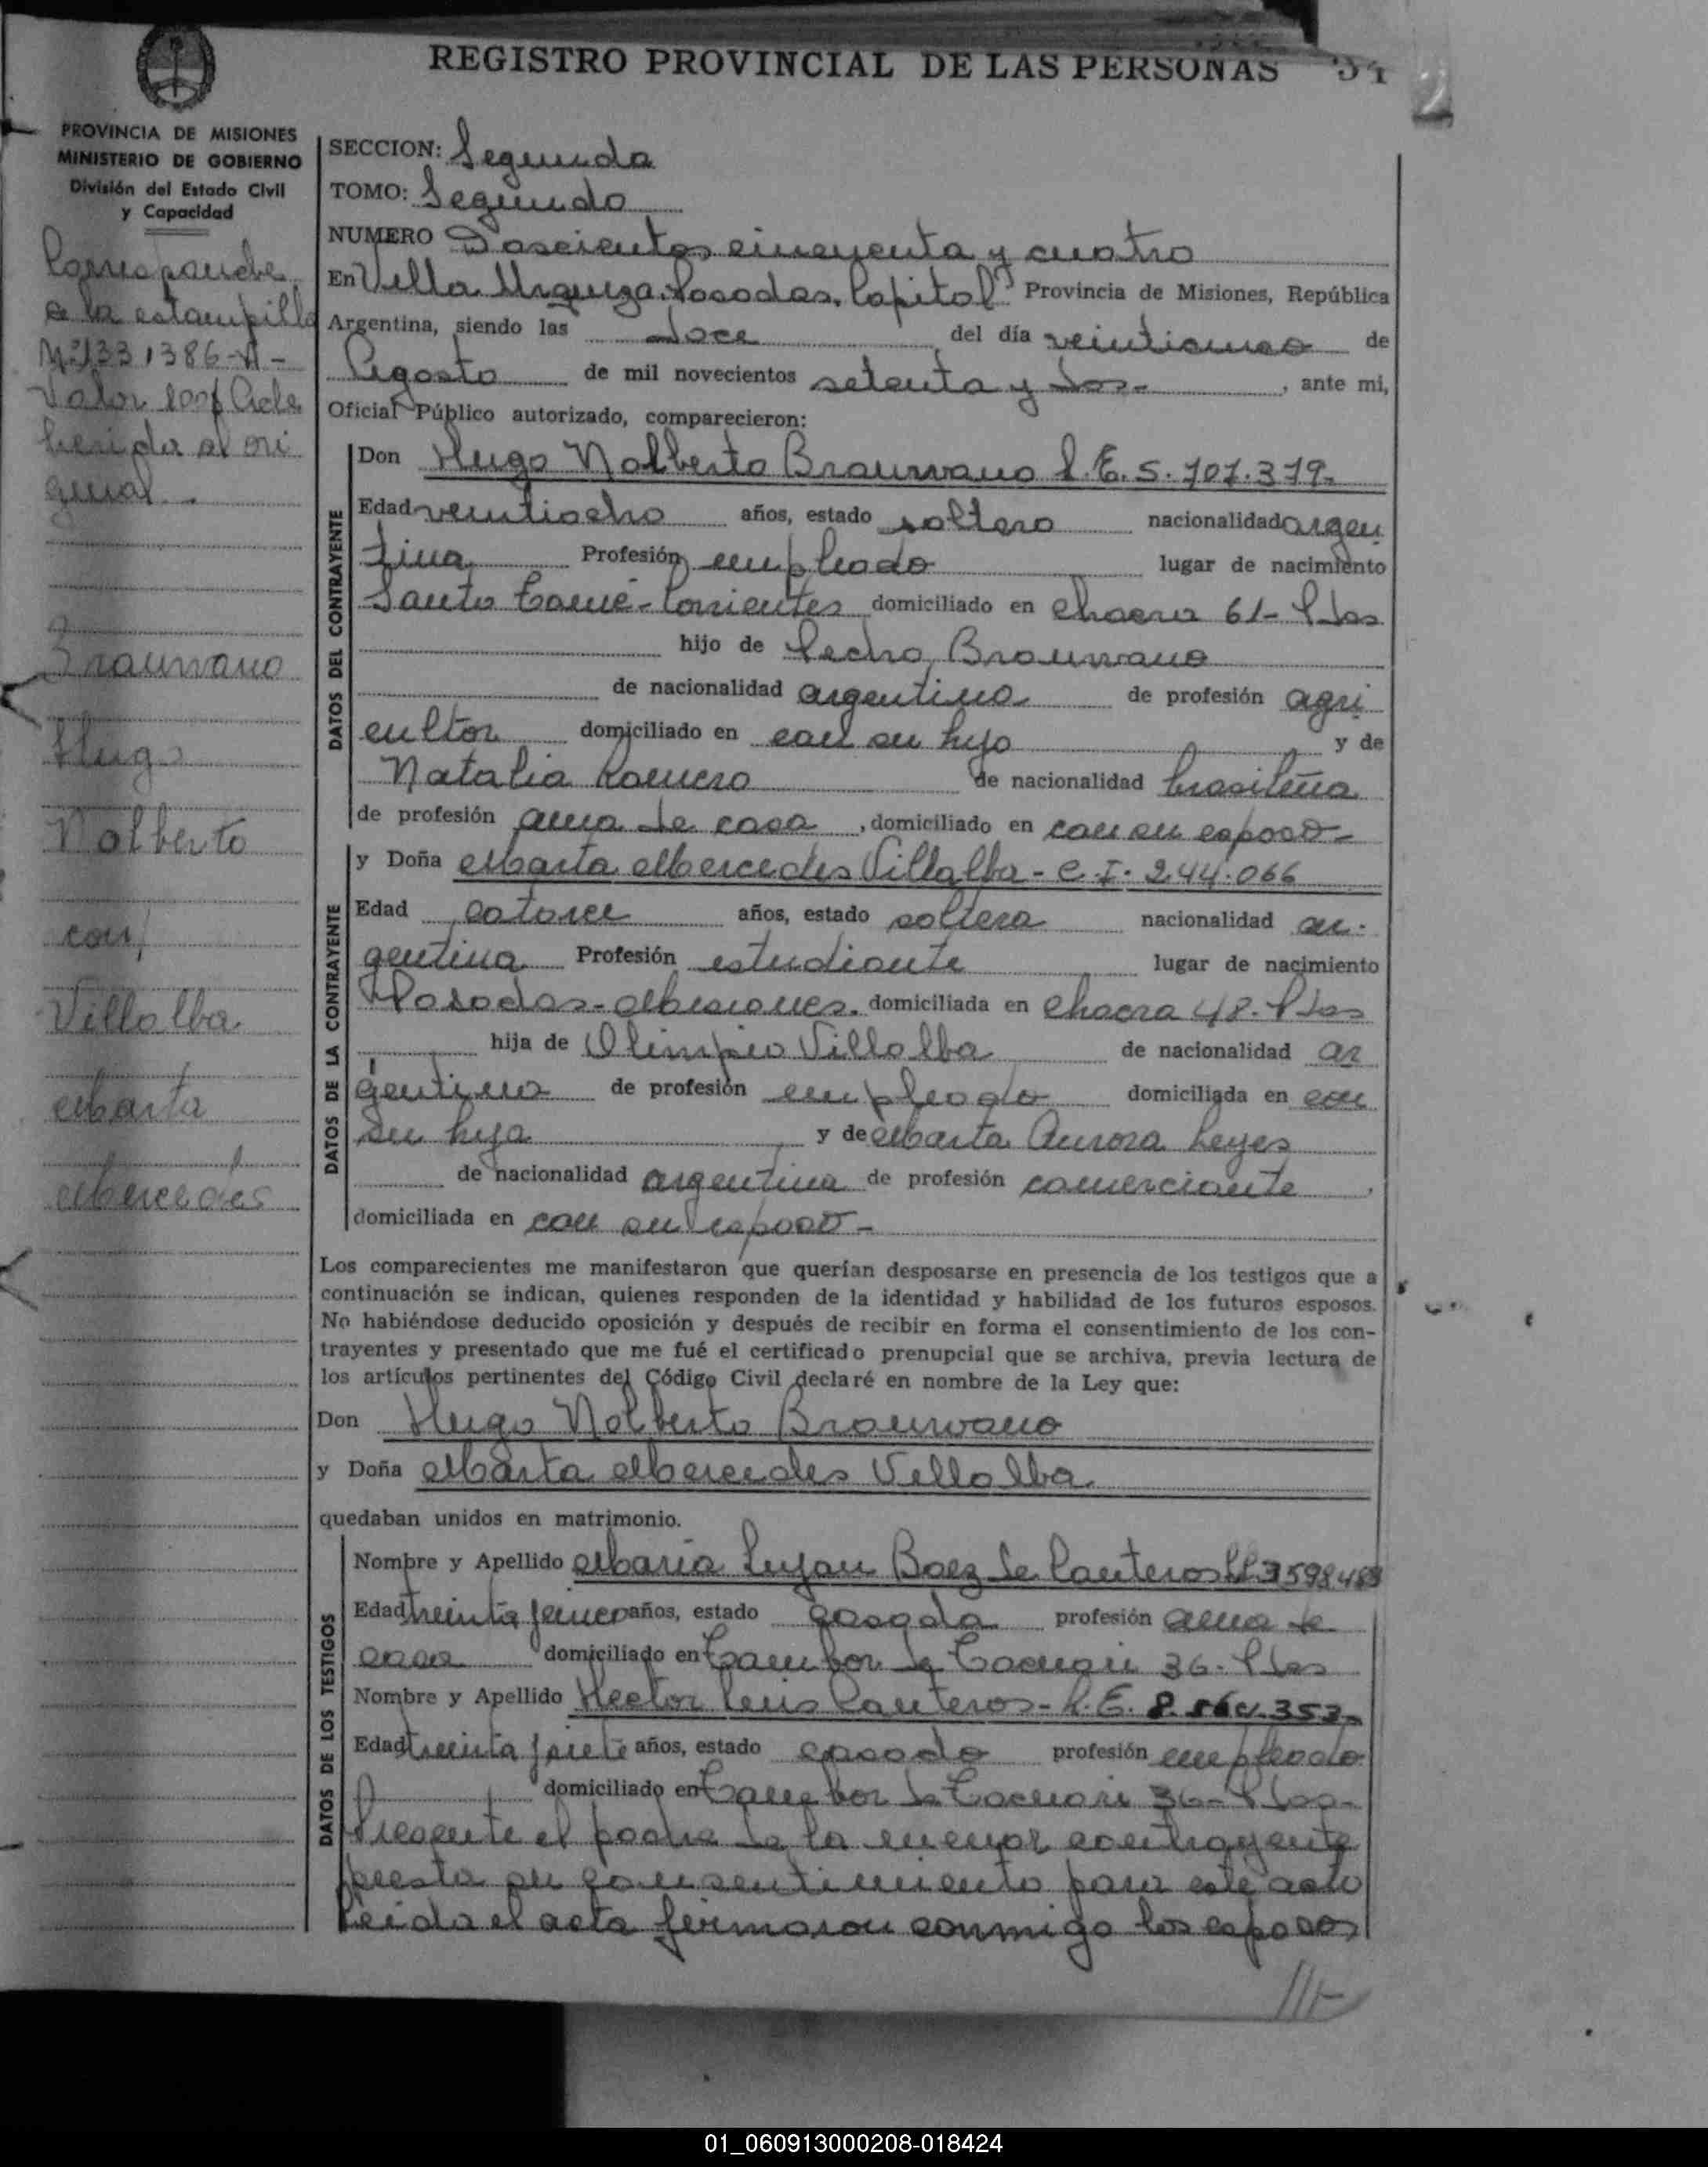 REGISTRO PROVINCIAL DE LAS PERSONAS
PROVINCIA DE MISIONES
MINISTERIO DE GOBIERNO
División del Estado Civil
y Capacidad
Corresponde
a la estampilla
Nº 1331386-A-
Valor 100$ Adhe
herida al ori
ginal.
Braunvano
Hugo
Nalberto
con/
Villalba
Marta
Mercedes
SECCION: Segunda
TOMO: Segundo
NUMERO Doscientos cincuenta y cuatro
En Villa Urquiza. Posadas, Capital Provincia de Misiones, República
Argentina, siendo las doce del día veinticinco de
Agosto de mil novecientos setenta y dos- , ante mi,
Oficial Público autorizado, comparecieron:
DATOS DEL CONTRAYENTE
Don Hugo Nalberto Braunvano L.E. 5.707.379-
Edad veintiocho años, estado soltero nacionalidad argen
tina Profesión empleado lugar de nacimiento
Santo Tomé-Corrientes domiciliado en chacra 61- Pdas
hijo de Pedro Braunvano
de nacionalidad argentino de profesión agri
cultor domiciliado en con su hijo y de
Natalia Romero de nacionalidad brasileña
de profesión ama de casa , domiciliado en con su esposo-
y Doña Marta Mercedes Villalba - C.I. 244.066
DATOS DE LA CONTRAYENTE
Edad catorce años, estado soltera nacionalidad ar-
gentina Profesión estudiante lugar de nacimiento
Posadas-Misiones. domiciliada en chacra 48. Pdas
hija de Olimpio Villalba de nacionalidad ar
gentino de profesión empleado domiciliada en con
su hija y de Marta Aurora Leyes
de nacionalidad argentina de profesión comerciante ,
domiciliada en con su esposo-
Los comparecientes me manifestaron que querían desposarse en presencia de los testigos que a
continuación se indican, quienes responden de la identidad y habilidad de los futuros esposos.
No habiéndose deducido oposición y después de recibir en forma el consentimiento de los con-
trayentes y presentado que me fué el certificado prenupcial que se archiva, previa lectura de
los artículos pertinentes del Código Civil declaré en nombre de la Ley que:
Don Hugo Nolberto Braunvano
y Doña Marta Mercedes Villalba
quedaban unidos en matrimonio.
DATOS DE LOS TESTIGOS
Nombre y Apellido Maria Lujan Baez de Canteros
Edad treinta años, estado casada profesión ama de
casa domiciliado en Tambor de Tacuari 36- Pdas
Nombre y Apellido Hector Luis Canteros- L.E.
Edad treinta y siete años, estado casado profesión empleado
domiciliado en Tambor de Tacuari 36- Pdas-
Presente el padre de la menor contrayente
presta su consentimiento para este acto
Leida el acta firmaron conmigo los esposos
///-
01_060913000208-018424